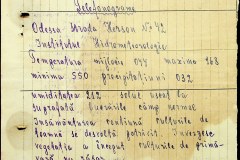 Telefonograma
Odessa Strada Herson Nr 42
Institutul Hidrometeorologic
Temperatura mijlocie 044 maxima 168
minima 550 precipitatiuni 032
umiditatea 212 solul uscat la
suprafață câmp normal
Insămânțarea continuă culturile de
toamnă se desvoltă potrivit.
vegetația a început culturile de primă-